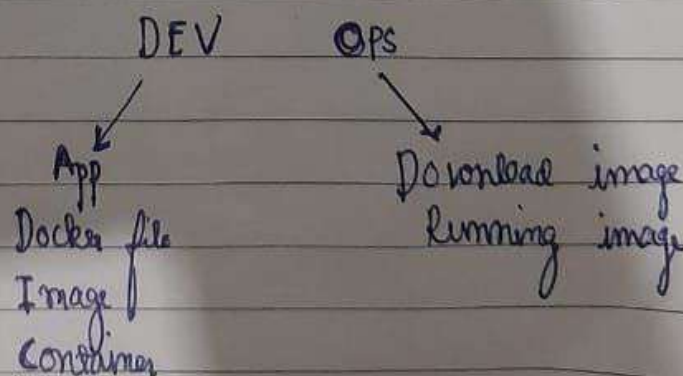 DEV OPS
App
Docker file
Image
Container
Download image
Running image